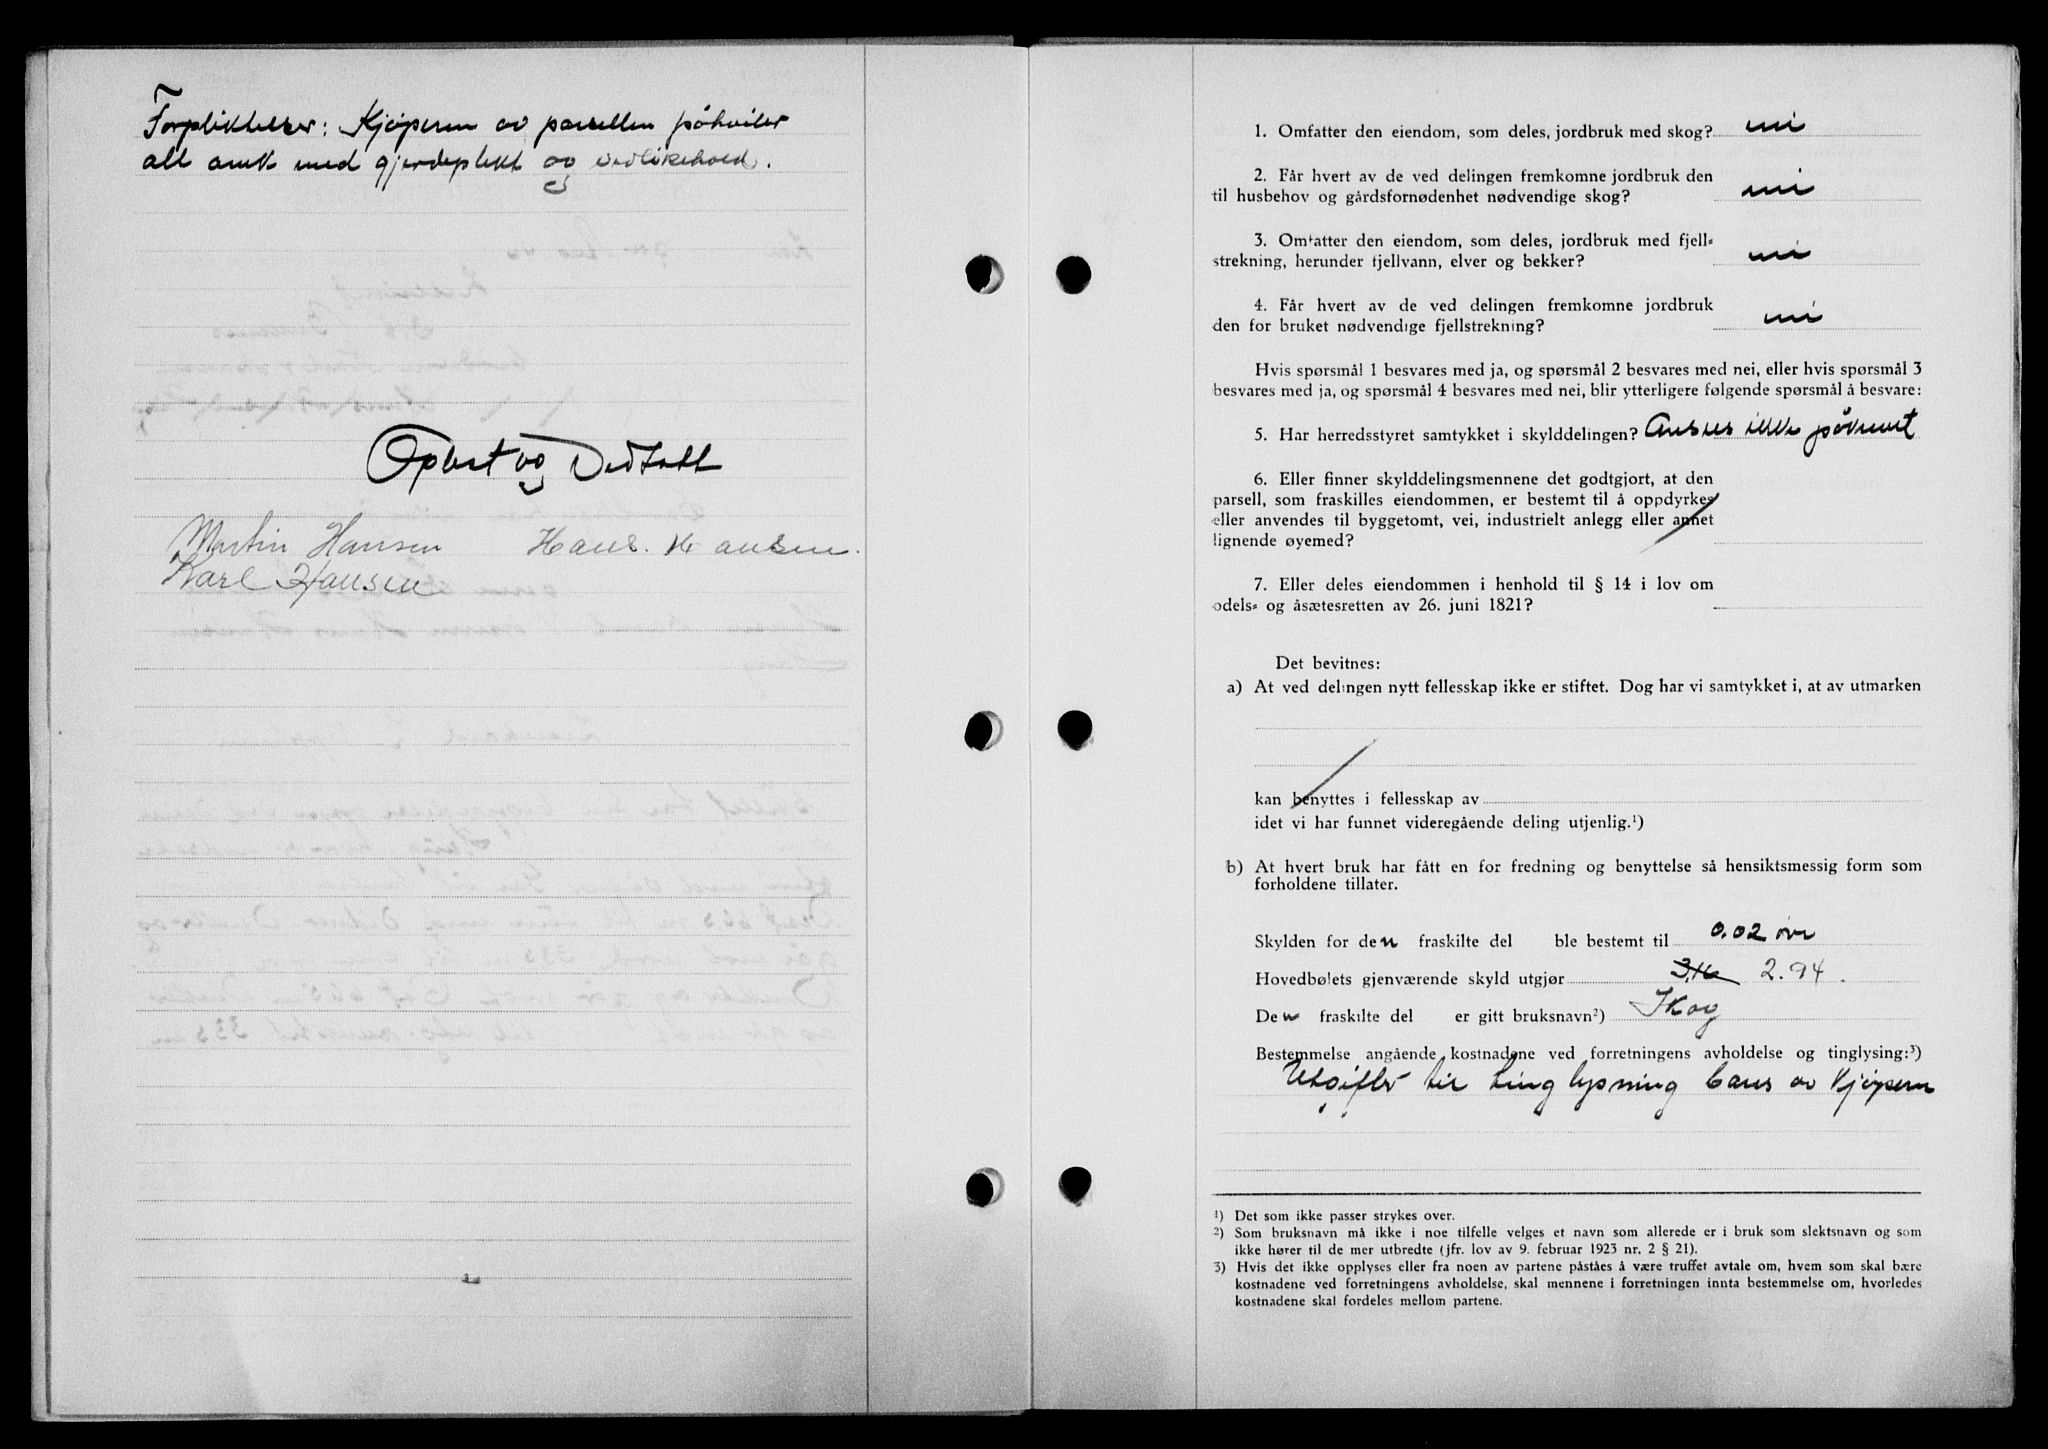 Forpliktelser: Kjøperen av parsellen påhviler
alt arek med gjerdeplikt og vedlikehold.
Oplest og Vedtatt
Martin Hansen Hans. Hansen.
Karl Hansen
1. Omfatter den eiendom, som deles, jordbruk med skog? nei
2. Får hvert av de ved delingen fremkomne jordbruk den
til husbehov og gårdsfornødenhet nødvendige skog? nei
3. Omfatter den eiendom, som deles, jordbruk med fjell-
strekning, herunder fjellvann, elver og bekker? nei
4. Får hvert av de ved delingen fremkomne jordbruk
den for bruket nødvendige fjellstrekning? nei
Hvis spørsmål 1 besvares med ja, og spørsmål 2 besvares med nei, eller hvis spørsmål 3
besvares med ja, og spørsmål 4 besvares med nei, blir ytterligere følgende spørsmål å besvare:
5. Har herredsstyret samtykket i skylddelingen? Anses ikke påkrevet
6. Eller finner skylddelingsmennene det godtgjort, at den
parsell, som fraskilles eiendommen, er bestemt til å oppdyrkes
eller anvendes til byggetomt, vei, industrielt anlegg eller annet
lignende øyemed?
7. Eller deles eiendommen i henhold til § 14 i lov om
odels- og åsætesretten av 26. juni 1821?
Det bevitnes:
a) At ved delingen nytt fellesskap ikke er stiftet. Dog har vi samtykket i, at av utmarken
kan benyttes i fellesskap av
idet vi har funnet videregående deling utjenlig.¹)
b) At hvert bruk har fått en for fredning og benyttelse så hensiktsmessig form som
forholdene tillater.
Skylden for den fraskilte del ble bestemt til 0.02 øre
Hovedbølets gjenværende skyld utgjør 3.16 2.94.
Den fraskilte del er gitt bruksnavn²) Skog
Bestemmelse angående kostnadene ved forretningens avholdelse og tinglysing:³)
Utgifter til tinglysning bæres av kjøperen
¹) Det som ikke passer strykes over.
²) Som bruksnavn må ikke i noe tilfelle velges et navn som allerede er i bruk som slektsnavn og som
ikke hører til de mer utbredte (jfr. lov av 9. februar 1923 nr. 2 § 21).
3) Hvis det ikke opplyses eller fra noen av partene påståes å være truffet avtale om, hvem som skal bære
kostnadene ved forretningens avholdelse, skal mennene i forretningen innta bestemmelse om, hvorledes
kostnadene skal fordeles mellom partene.